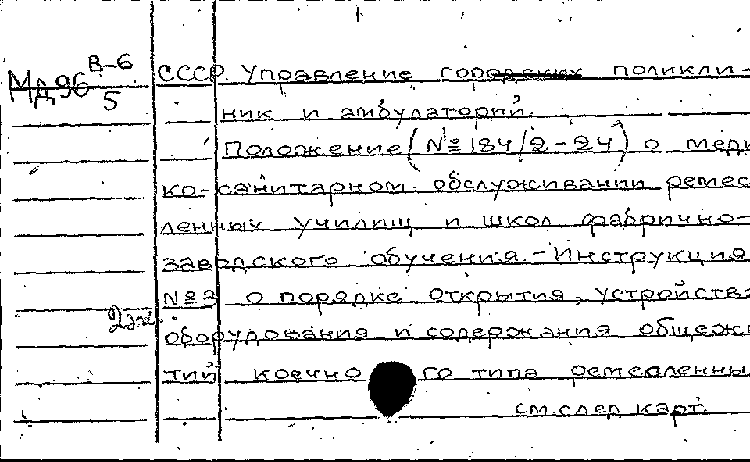 МД96 В-6/5
СССР. Управление городских поликли-
ник и амбулаторий.
Положение (№ 184/2-24) о меди
ко-санитарном обслуживании ремес
ленных училищ и школ фабрично-
заводского обучения.-Инструкция
№2 о порядке открытия, устройства
2экз.
оборудования и содержания общежи
тий коечного типа ремесленны
см.след.карт.